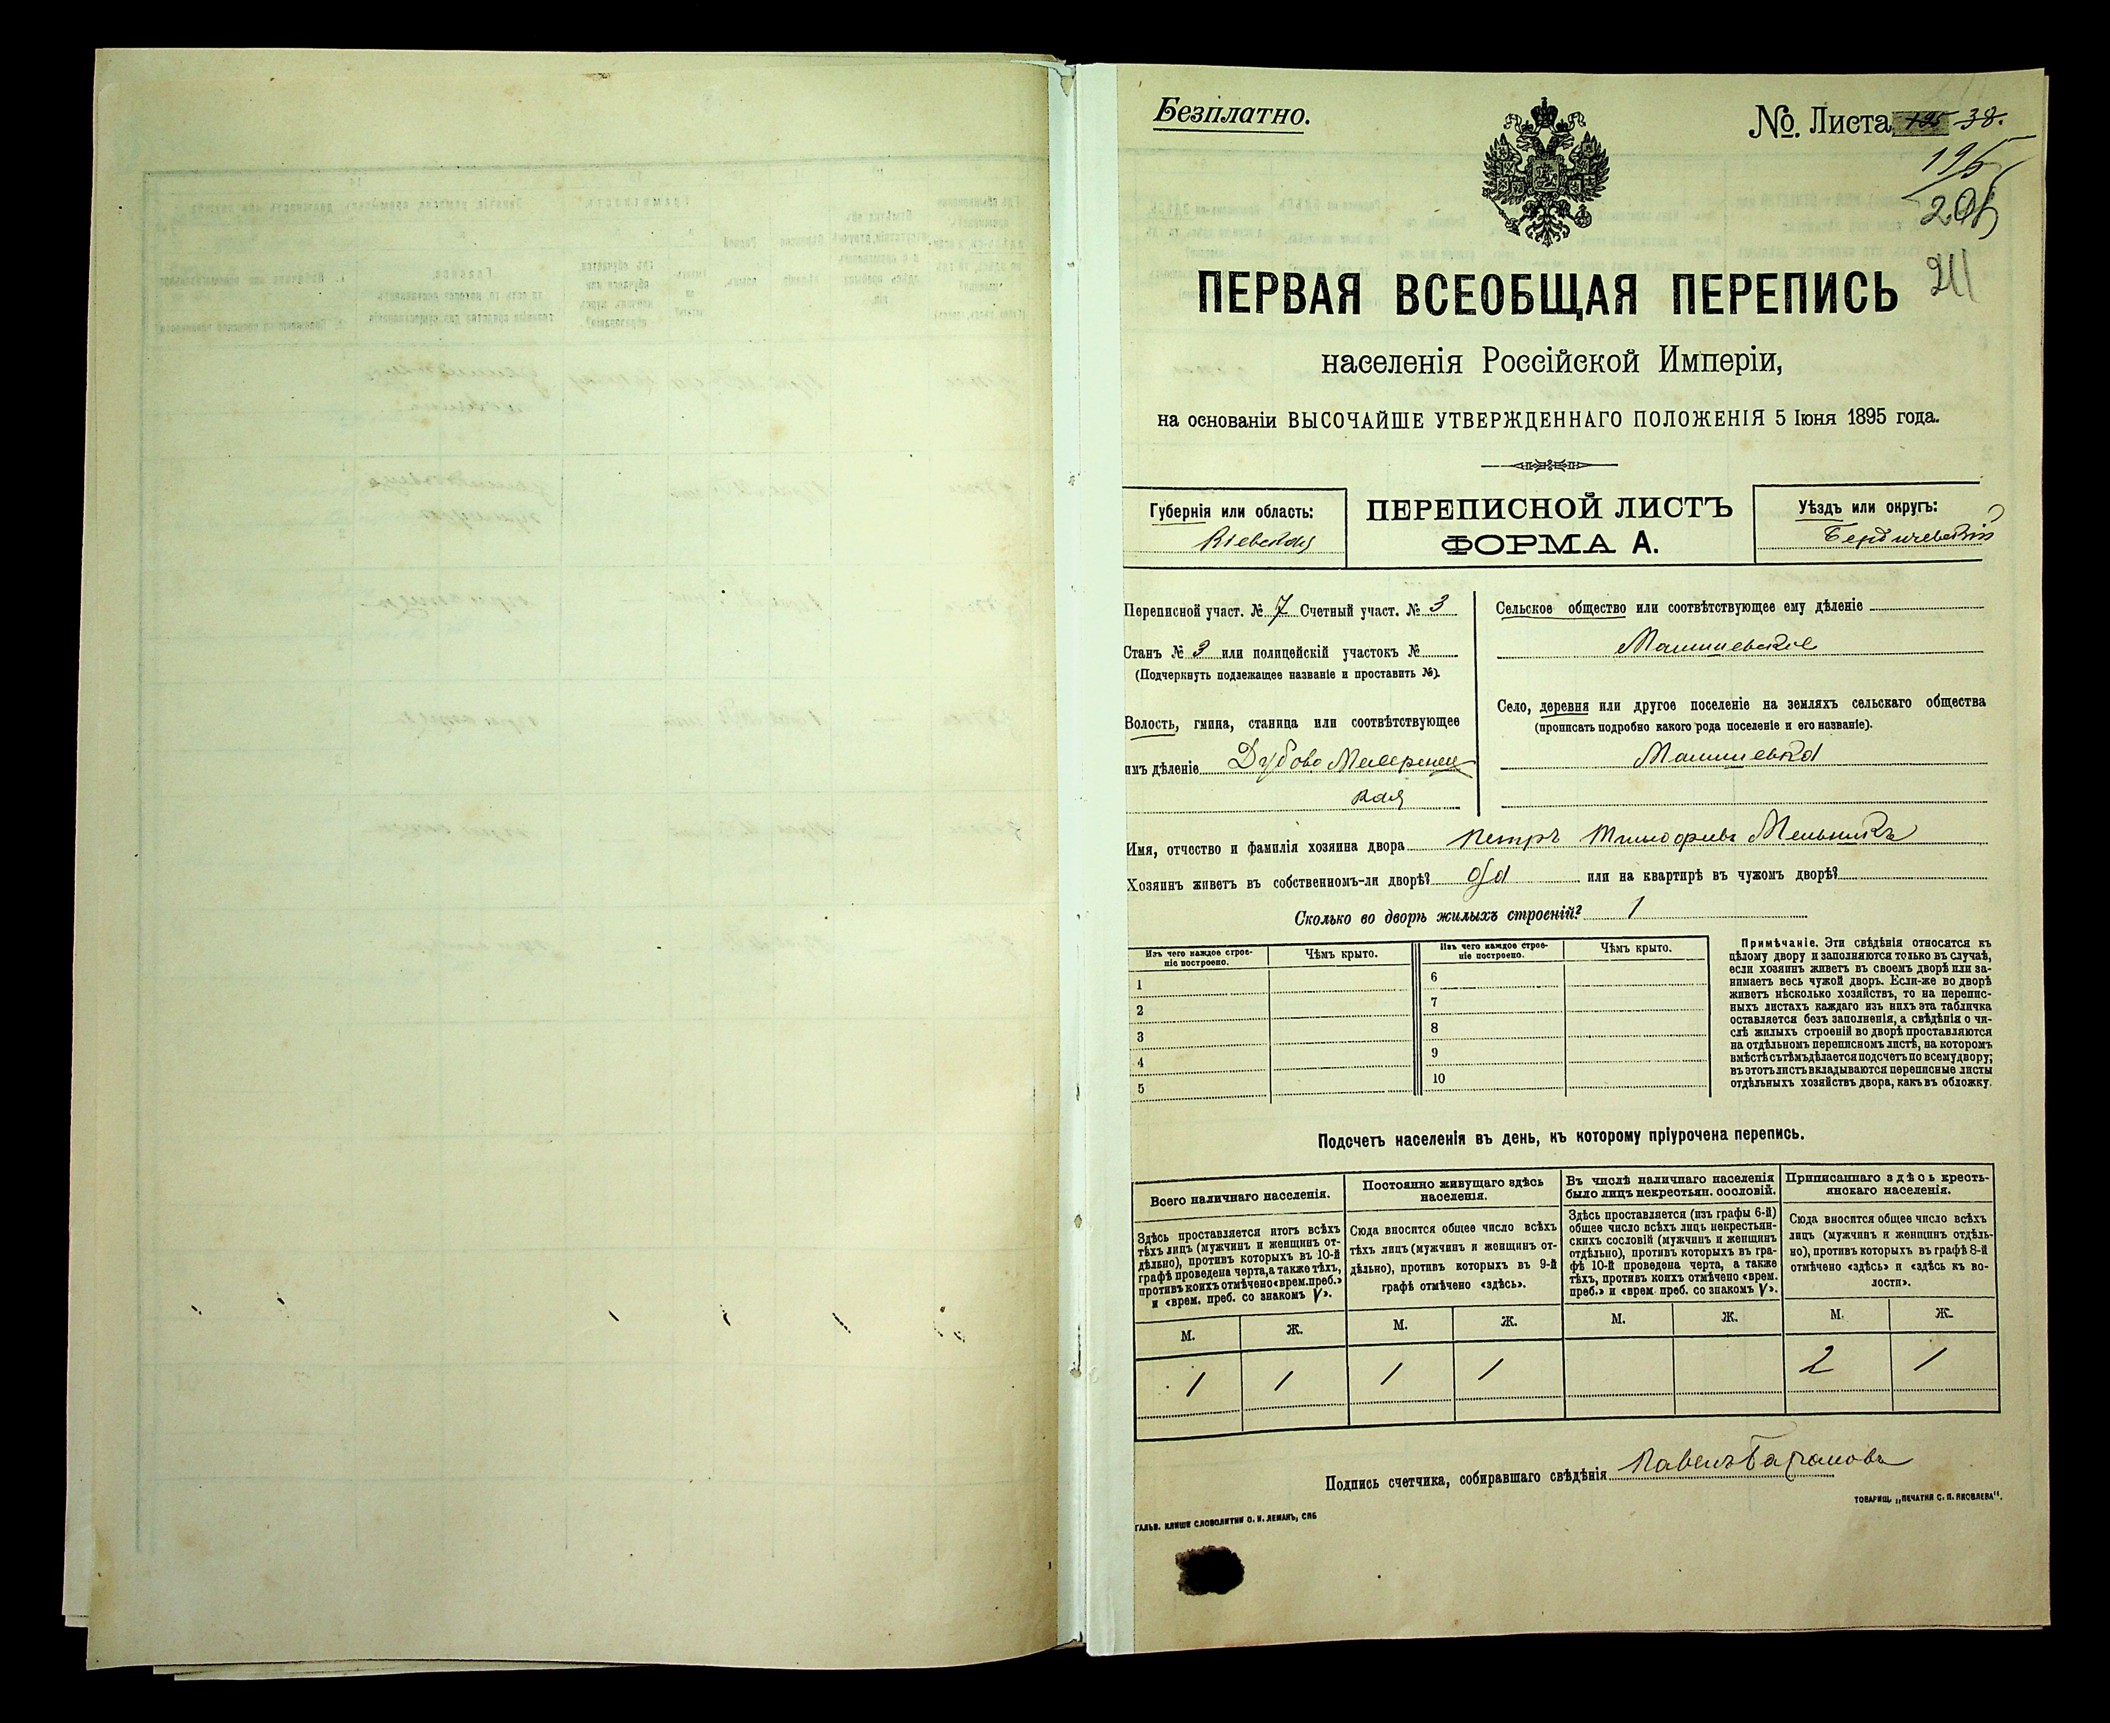 Безплатно.
№. Листа 38.
195
205
211
ПЕРВАЯ ВСЕОБЩАЯ ПЕРЕПИСЬ
населенія Россійской Имперіи,
на основаніи ВЫСОЧАЙШЕ УТВЕРЖДЕННАГО ПОЛОЖЕНІЯ 5 Іюня 1895 года.
Губернія или область:
Кіевская
ПЕРЕПИСНОЙ ЛИСТЪ
ФОРМА А.
Уѣздъ или округъ:
Бердичевскій
Переписной участ. № 7 Счетный участ. № 3
Станъ № 3 или полицейскій участокъ №
(Подчеркнуть подлежащее названіе и проставить №).
Волость, гмина, станица или соотвѣтствующее
имъ дѣленіе Дубово Махаринец
кая
Сельское общество или соотвѣтствующее ему дѣленіе
Машиевское
Село, деревня или другое поселеніе на земляхъ сельскаго общества
(прописать подробно какого рода поселеніе и его названіе).
Имя, отчество и фамилія хозяина двора Петръ Тимофиевъ Мельникъ
Хозяинъ живетъ въ собственномъ-ли дворѣ? да или на квартирѣ въ чужомъ дворѣ?
Сколько во дворѣ жилыхъ строеній? 1
Изъ чего каждое строе-
ніе построено.
Чѣмъ крыто.
Изъ чего каждое строе-
ніе построено.
Чѣмъ крыто.
1
2
3
4
5
6
7
8
9
10
Примѣчаніе. Эти свѣдѣнія относятся къ
цѣлому двору и заполняются только въ случаѣ,
если хозяинъ живетъ въ своемъ дворѣ или за-
нимаетъ весь чужой дворъ. Если-же во дворѣ
живетъ нѣсколько хозяйствъ, то на перепис-
ныхъ листахъ каждаго изъ нихъ эта табличка
оставляется безъ заполненія, а свѣдѣнія о чи-
слѣ жилыхъ строеній во дворѣ проставляются
на отдѣльномъ переписномъ листѣ, на которомъ
вмѣстѣ съ тѣмъ дѣлается подсчетъ по всему двору;
въ этотъ листъ вкладываются переписные листы
отдѣльныхъ хозяйствъ двора, какъ въ обложку.
Подсчетъ населенія въ день, къ которому пріурочена перепись.
Всего наличнаго населенія.
Здѣсь проставляется итогъ всѣхъ
тѣхъ лицъ (мужчинъ и женщинъ от-
дѣльно), противъ которыхъ въ 10-й
графѣ проведена черта, а также тѣхъ,
противъ коихъ отмѣчено «врем. преб.»
и «врем. преб. со знакомъ V».
Постоянно живущаго здѣсь
населенія.
Сюда вносится общее число всѣхъ
тѣхъ лицъ (мужчинъ и женщинъ от-
дѣльно), противъ которыхъ въ 9-й
графѣ отмѣчено «здѣсь».
Въ числѣ наличнаго населенія
было лицъ некрестьян. сословій.
Здѣсь проставляется (изъ графы 6-й)
общее число всѣхъ лицъ некрестьян-
скихъ сословій (мужчинъ и женщинъ
отдѣльно), противъ которыхъ въ гра-
фѣ 10-й проведена черта, а также
тѣхъ, противъ коихъ отмѣчено «врем.
преб.» и «врем. преб. со знакомъ V».
Приписаннаго здѣсь кресть-
янскаго населенія.
Сюда вносится общее число всѣхъ
лицъ (мужчинъ и женщинъ отдѣль-
но), противъ которыхъ въ графѣ 8-й
отмѣчено «здѣсь» и «здѣсь къ во-
лости».
М. Ж. М. Ж. М. Ж. М. Ж.
1 1 1 1 2 1
Подпись счетчика, собиравшаго свѣдѣнія Павелъ Барановъ
ГАЛЬВ. КЛИШЕ СЛОВОЛИТНИ О. И. ЛЕМАНЪ, СПБ
ТОВАРИЩ. „ПЕЧАТНЯ С. П. ЯКОВЛЕВА".